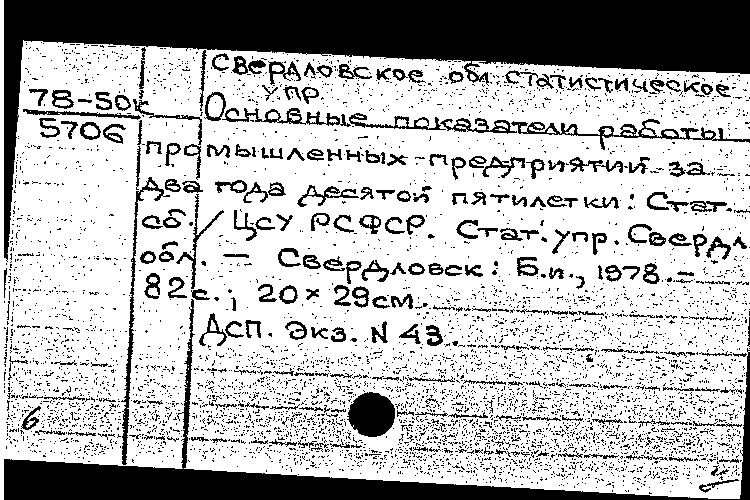 Свердловское обл. статистическое
упр
78-50к
5706
Основные показатели работы
промышленных предприятий за
два года десятой пятилетки: Стат.
сб. / ЦСУ РСФСР. Стат. упр. Свердл.
обл. — Свердловск: Б.и., 1978. —
82с.; 20×29см.
Дсп. Экз. N 43.
6